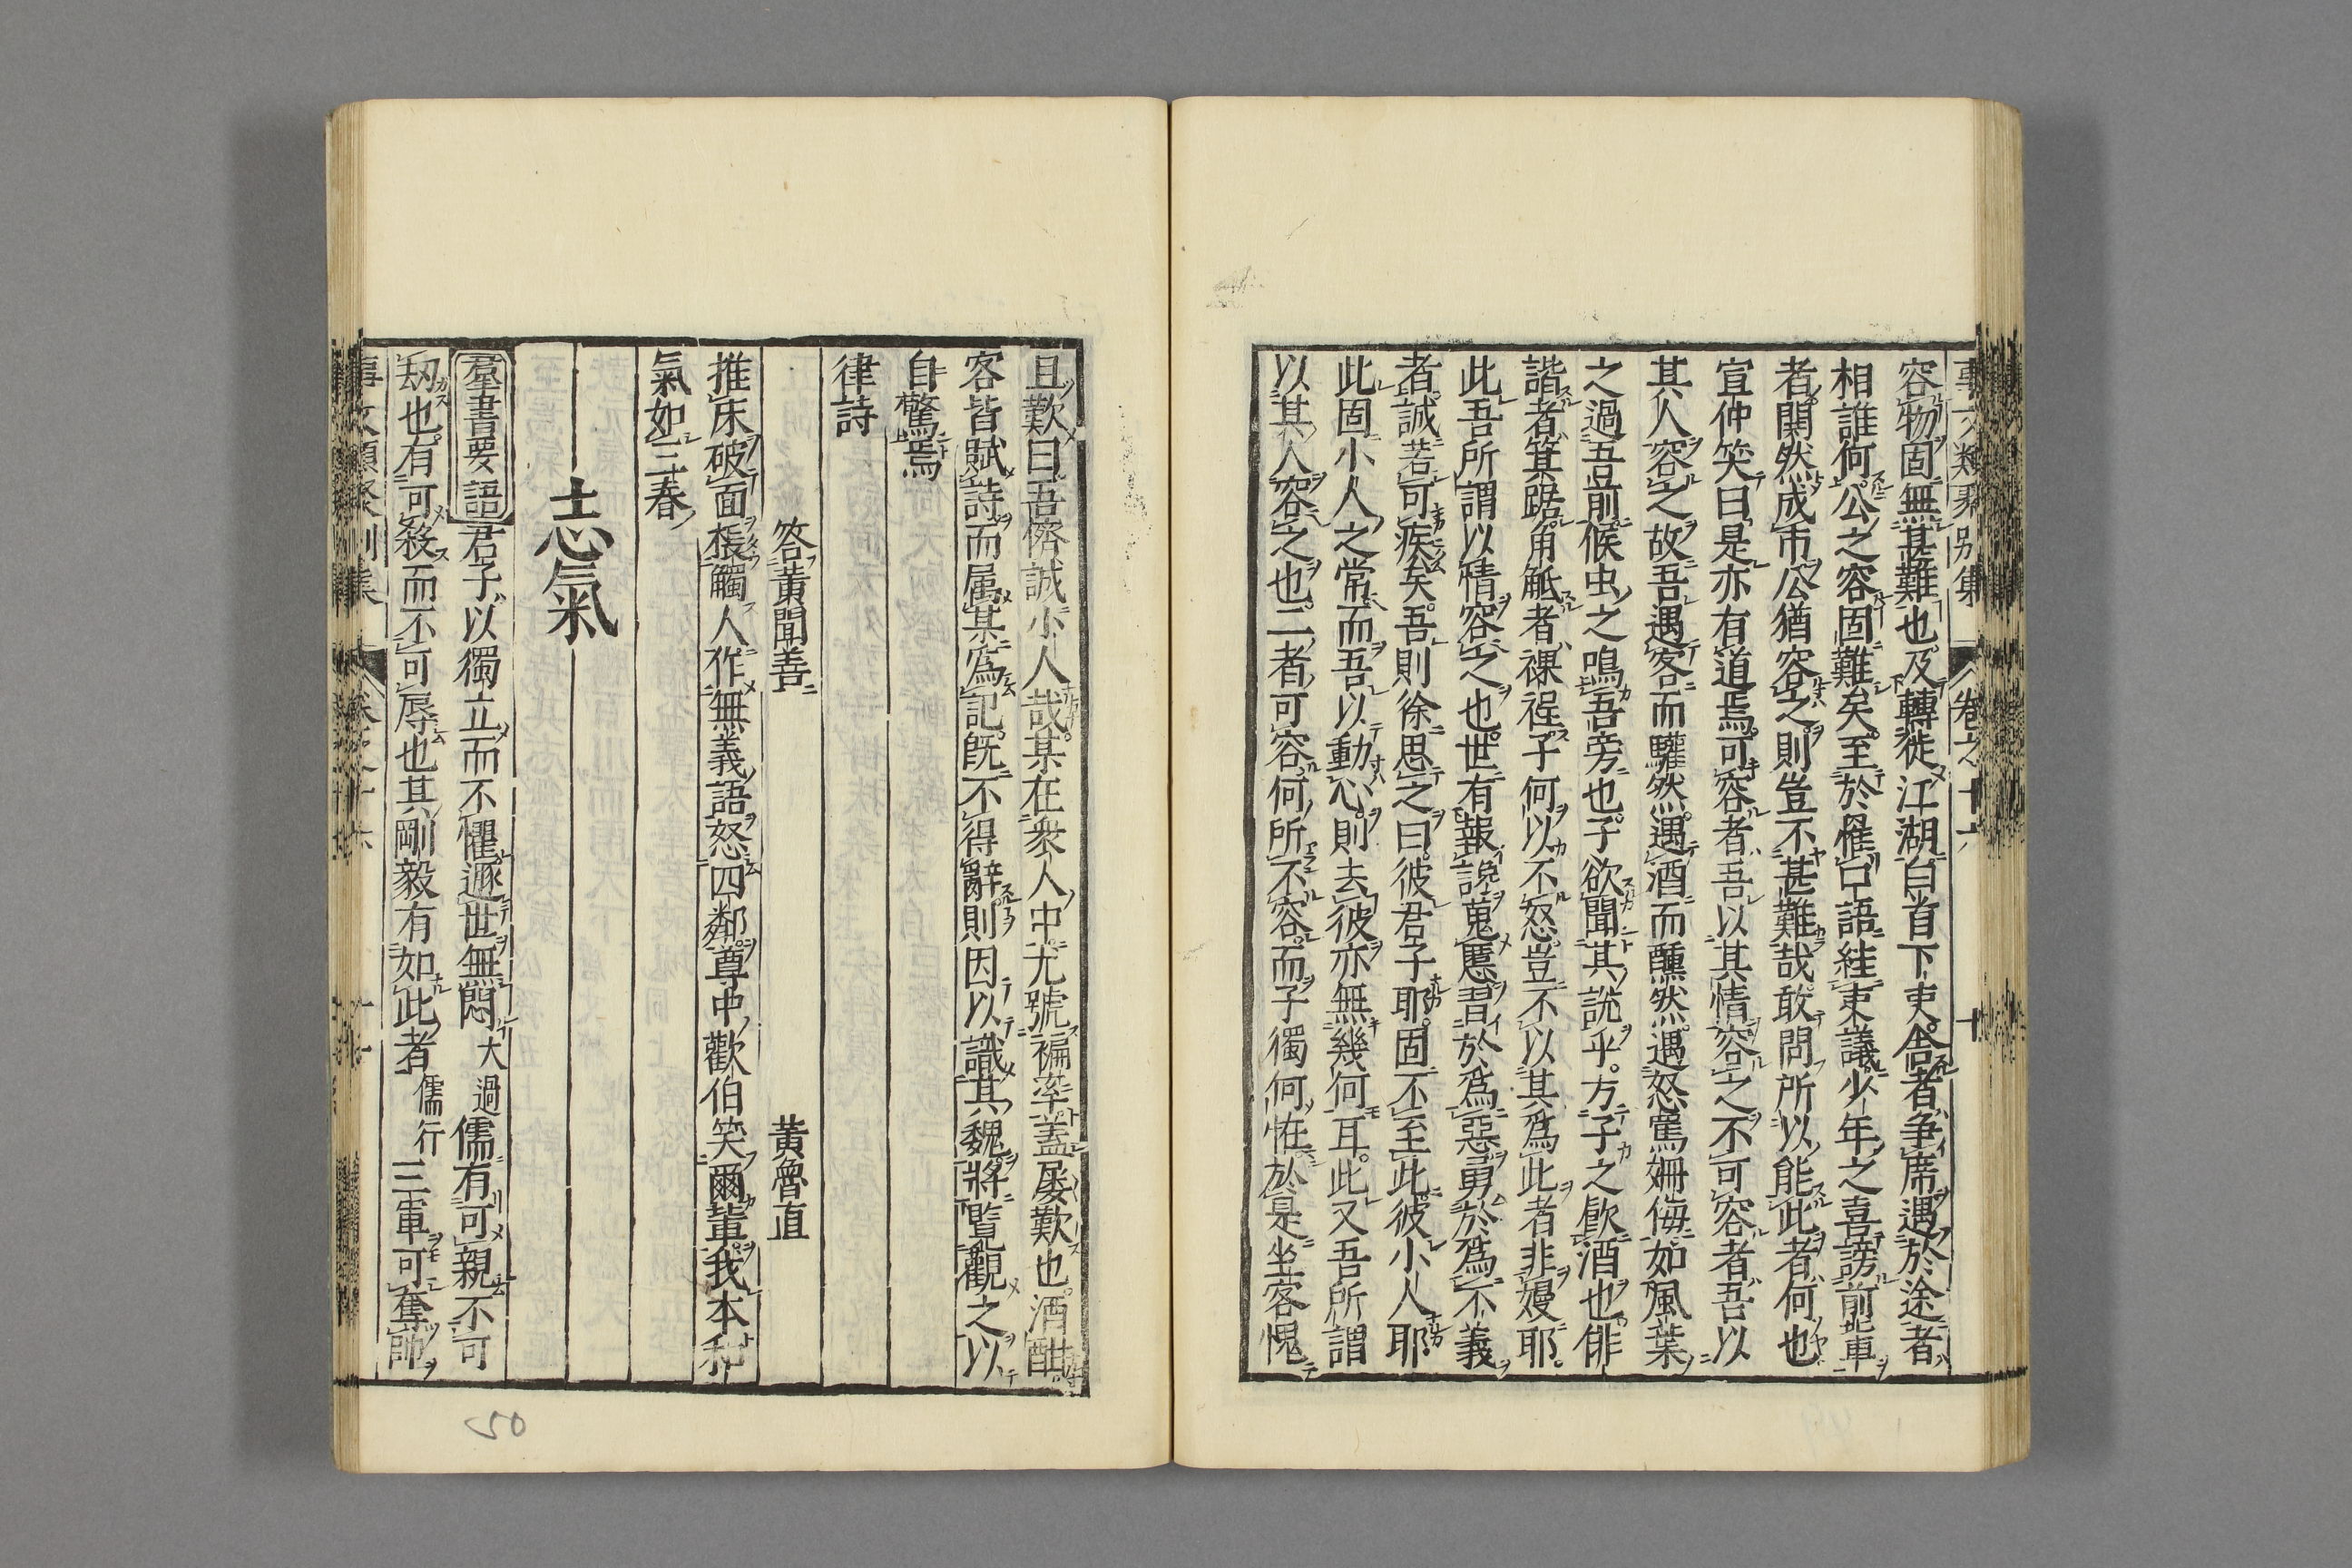 事文類聚別集 卷之十六 十
容物固無甚難也及轉徙江湖白首下吏舍者争席遇於途者
相誰何公之容固難矣至於罹口語絓吏議少年之喜謗前輩
者閧然成市公猶容之則豈不甚難哉敢問所以能此者何也
宣仲笑曰是亦有道焉可容者吾以其情容之不可容者吾以
其人容之故吾遇客而驩然遇酒而醺然遇怒罵姍侮如風葉
之過吾前候虫之鳴吾旁也子欲聞其說乎方子之飲酒也俳
諧者箕踞角觝者裸裎子何以不怒豈不以其為此者非嫚耶
此吾所謂以情容之也世有報讒蒐慝習於為惡勇於為不義
者誠若可疾矣吾則徐思之曰彼君子耶固不至此彼小人耶
此固小人之常而吾以動心則去彼亦無幾何耳此又吾所謂
以其人容之也二者可容何所不容而子獨何怪於是坐客愧
且歎曰吾儕誠小人哉某在衆人中尤號褊率蓋屡歎也酒酣
客皆賦詩而属某為記既不得辭則因以識其魏將覧觀之以
自驚焉
律詩
答黄聞善 黄魯直
推床破面棖觸人作無義語怒四鄰尊中歡伯笑爾輩我本和
氣如三春
志氣
羣書要語君子以獨立而不懼遯世無悶大過儒有可親不可
刼也有可殺而不可辱也其剛毅有如此者儒行三軍可奪帥
50